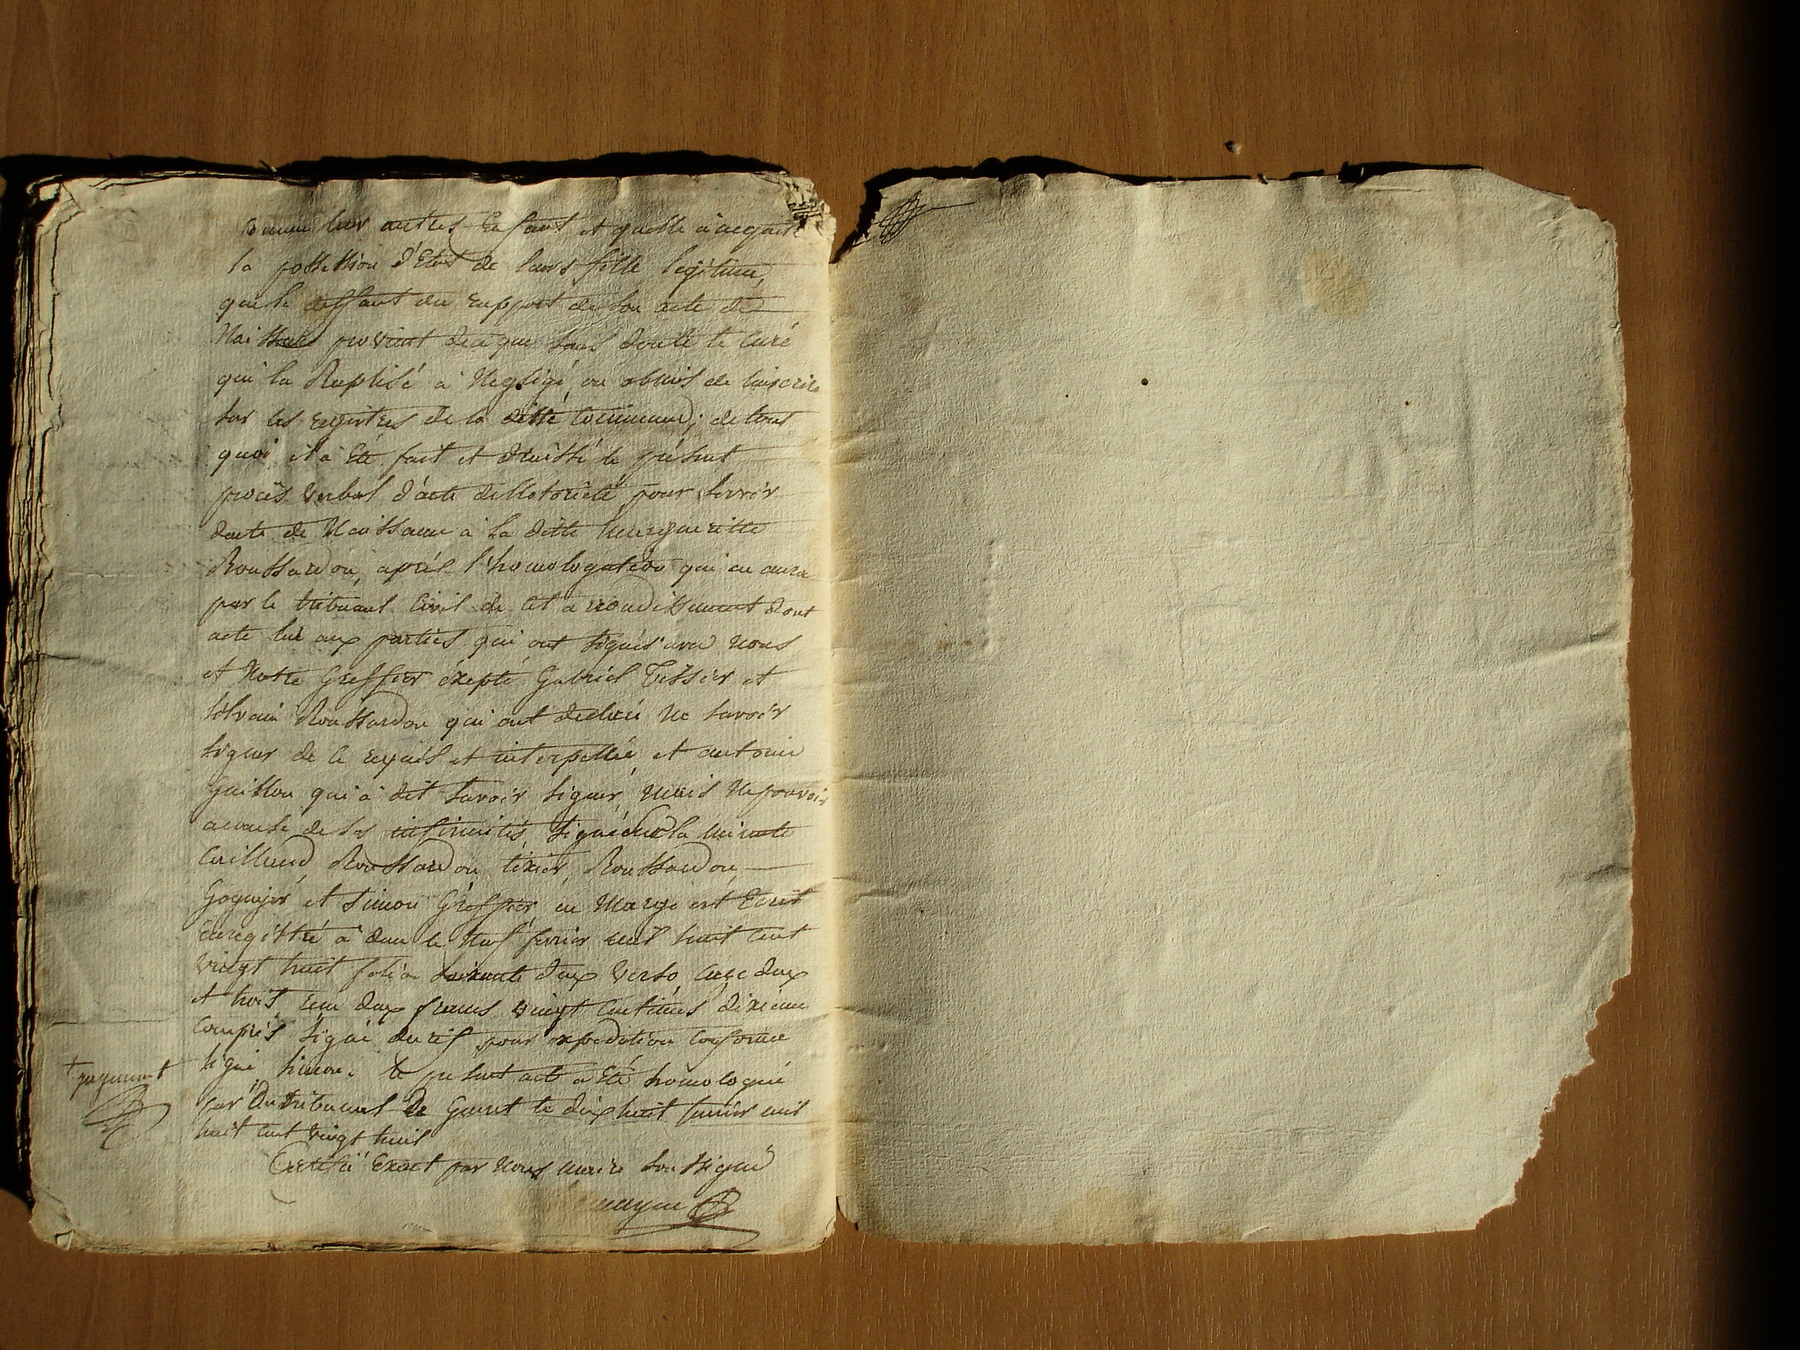 Comme leur autres Enfant et quelle à acquis
la possession d'Etat de leurs fille legitime,
que le deffaut du rapport de son acte de
Naissance provient dece que sans doute le Curé
qui la Baptisé à Negligé, ou obmis de linscrire
sur les registres de la ditte Commune; detout
quoi il à Eté fait et dréssé le présent
procès verbal d'acte de Notorieté pour servir
dacte de Naissance à la ditte Margueritte
Roussardon, après l'homologation qui en aura
par le tribunal Civil de cet arrondissement dont
acte lu aux parties qui ont signés avec nous
et Notre Greffier éxepté Gabriel Téssier et
Silvain Roussardon qui ont déclaré ne savoir
signer de ce requis et interpellé et antoine
Guillon qui à dit savoir signer, mais Nepouvoir
acause de ses infirmités, signé sur la Minute
Roussardon, tixier, Roussardon
et Simon Greffier en Marge est Ecrit
enregistré à dun le Neuf fevrier mil huit cent
vingt huit folio soixante deux verso Case deux
et trois reçu deux francs vingt Centimes dixieme
compris signé pour expedition Conforme
signé Simon. le présent acte a Eté homologué
par du tribunal De Gueret le dix huit mil
huit cent vingt huit
Certifié Exact par Nous maire Soussigné
+ jugement